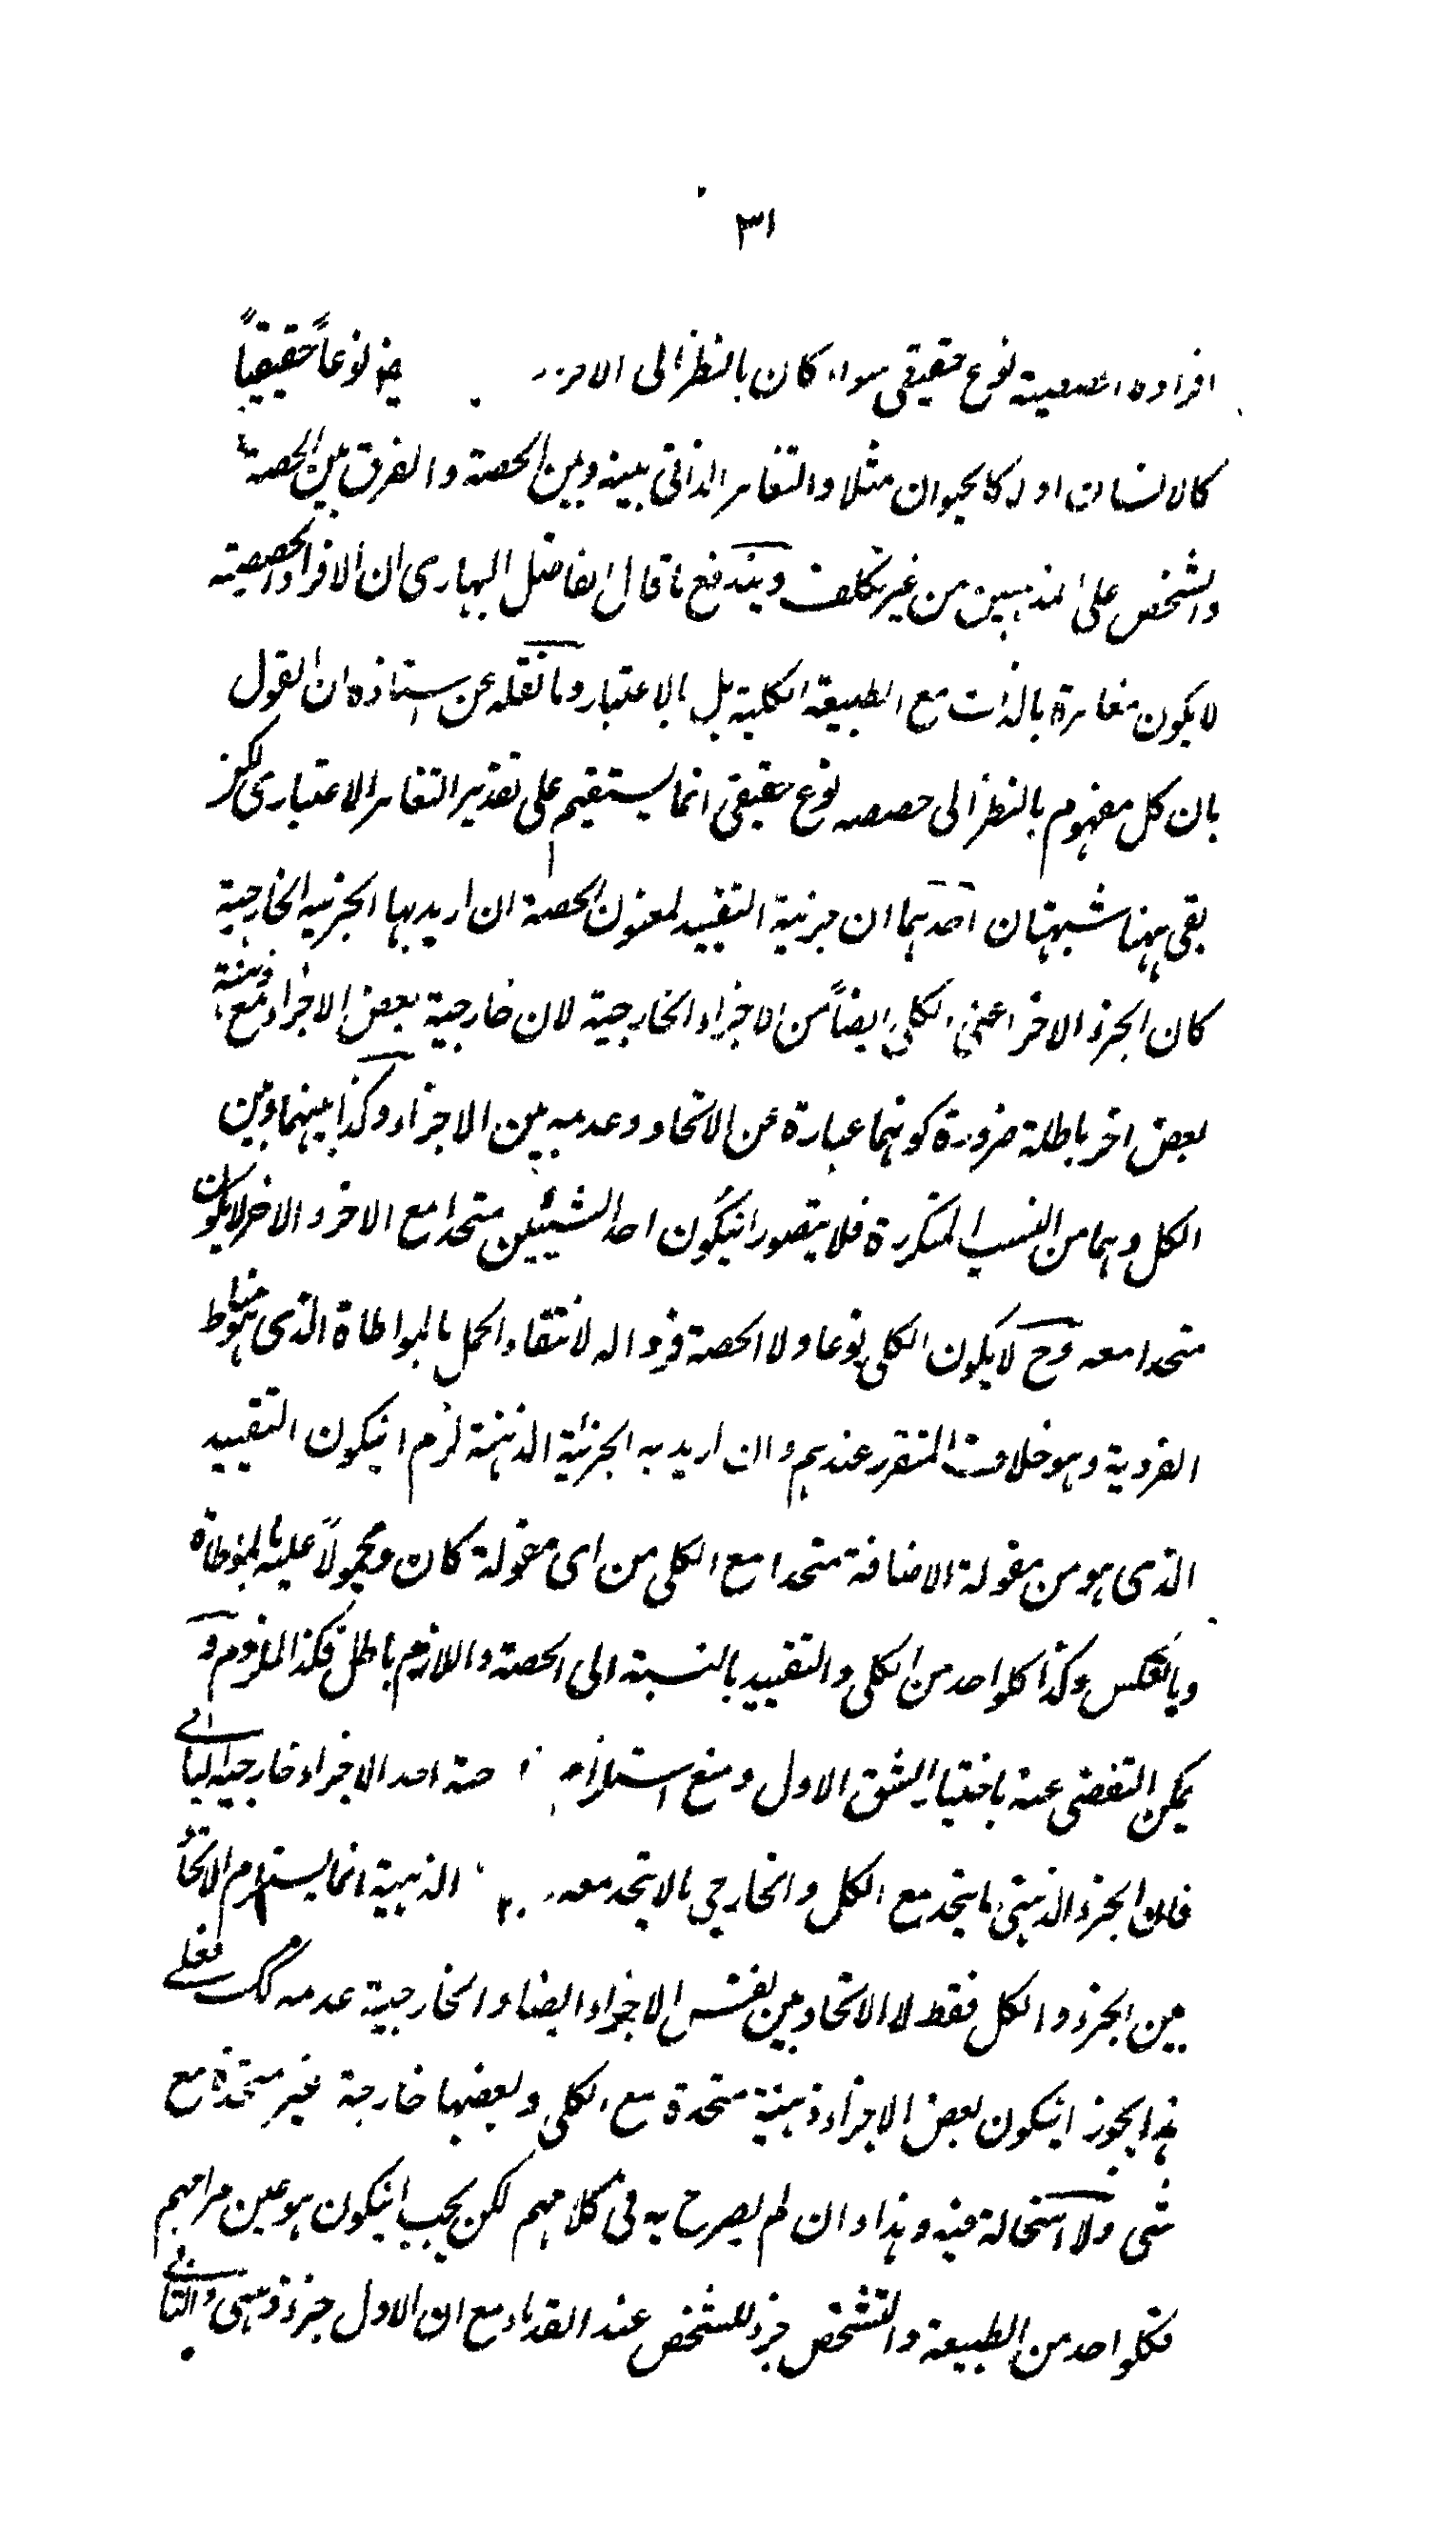 ٣١
افراده الحصصية نوع حقيقى سواء كان بالنظر الى الافراد نوعاً حقيقياً
كالانسان اولا كالحيوان مثلا والتغاير الذاتى بينه وبين الحصة والفرق بين الحصة
والشخص على المذهبين من غير تكلف ويندفع ما قال الفاضل البهارى ان الافراد الحصصية
لا يكون مغايرة بالذات مع الطبيعة الكلية بل بالاعتبار وما نقله عن استاذه ان القول
بان كل مفهوم بالنظر الى حصصه نوع حقيقى انما يستقيم على تقدير التغاير الاعتبارى لكن
بقى ههنا شبهتان احدهما ان جزئية التقييد لمعنون الحصة ان اريد بها الجزئية الخارجية
كان الجزء الاخر اعنى الكلى ايضاً من الاجزاء الخارجية لان خارجية بعض الاجزاء مع ذهنية
بعض اخر باطلة ضرورة كونهما عبارة عن الاتحاد وعدمه بين الاجزاء وكذا بينهما وبين
الكل وهما من النسب المتكررة فلا يتصور انيكون احد الشيئين متحدا مع الاخر والاخر لايكون
متحدا معه وح لايكون الكلى نوعا ولا الحصة فردا له لانتفاء الحمل بالمواطاة الذى هو مناط
الفردية وهو خلاف المتقرر عندهم وان اريد به الجزئية الذهنية لزم انيكون التقييد
الذى هو من مقولة الاضافة متحدا مع الكلى من اى مقولة كان ومحمولاً عليه بالمواطاة
وبالعكس وكذا كلواحد من الكلى والتقييد بالنسبة الى الحصة واللازم باطل فكذا الملزوم و
يمكن التفصى عنه باختيار الشق الاول ومنع استلزام احد الاجزاء خارجية الباقى
فان الجزء الذهنى ما يتحد مع الكل والخارجى ما لا يتحد معه الذهنية انما يستلزم الاتحاد
بين الجزء والكل فقط لا الاتحاد بين نفس الاجزاء ايضا والخارجية عدمه كك فعلى
هذا يجوز انيكون بعض الاجزاء ذهنية متحدة مع الكلى وبعضها خارجة غير متحدة مع
شئ ولا استحالة فيه وهذا وان لم يصرح به فى كلامهم لكن يجب انيكون هو عين مرامهم
فكلواحد من الطبيعة والتشخص جزء للشخص عند القدماء مع ان الاول جزء ذهنى والثانى